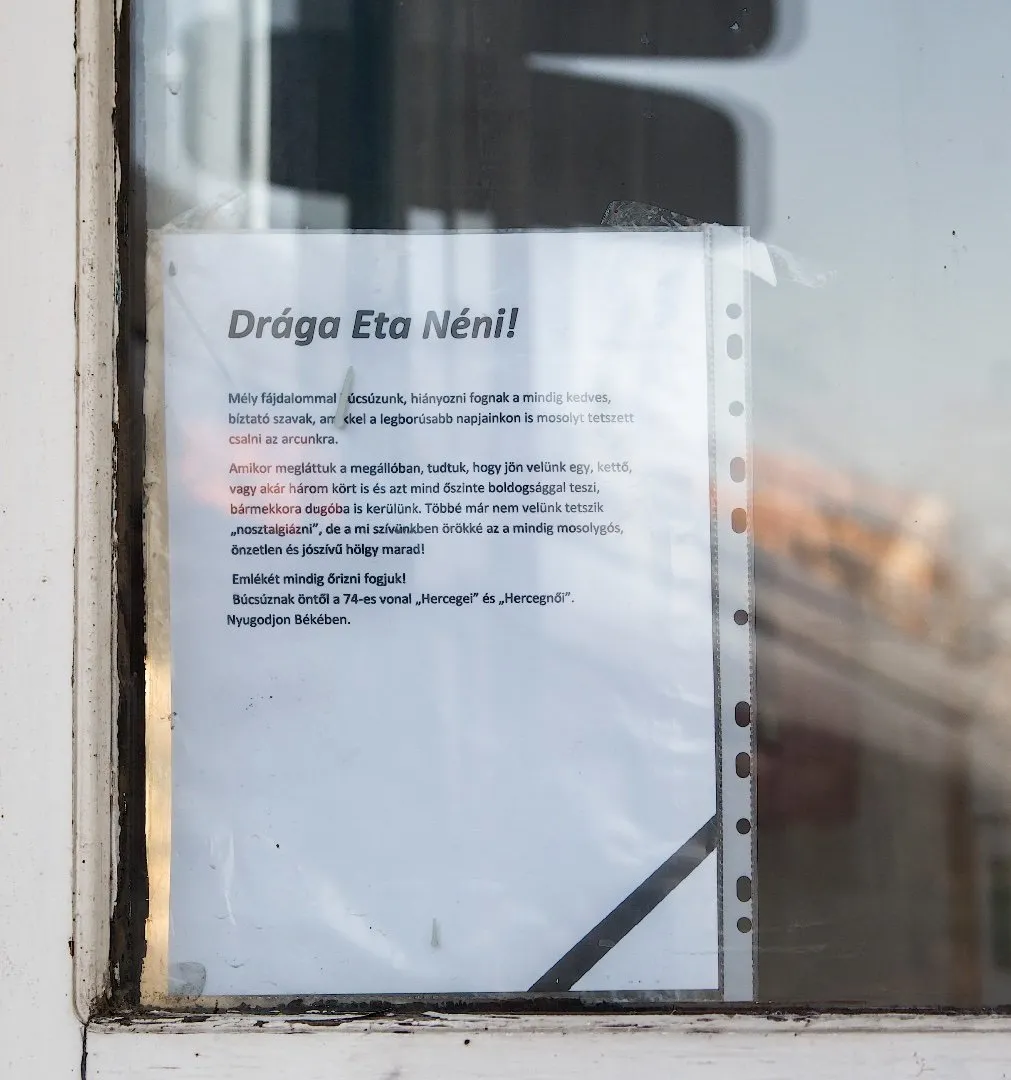 Drága Eta Néni!
Mély fájdalommal búcsúzunk, hiányozni fognak a mindig kedves,
bíztató szavak, amikkel a legborúsabb napjainkon is mosolyt tetszett
csalni az arcunkra.
Amikor megláttuk a megállóban, tudtuk, hogy jön velünk egy, kettő,
vagy akár három kört is és azt mind őszinte boldogsággal teszi,
bármekkora dugóba is kerülünk. Többé már nem velünk tetszik
„nosztalgiázni”, de a mi szívünkben örökké az a mindig mosolygós,
önzetlen és jószívű hölgy marad!
Emlékét mindig őrizni fogjuk!
Búcsúznak öntől a 74-es vonal „Hercegei” és „Hercegnői”.
Nyugodjon Békében.